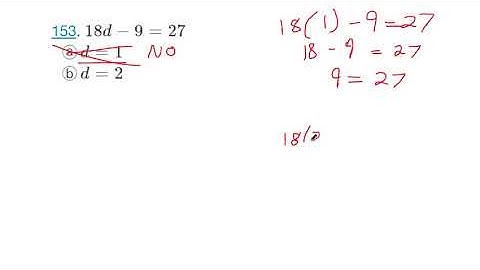 153. 18d − 9 = 27
ⓐ d = 1 NO
ⓑ d = 2
18(1) - 9 = 27
18 - 9 = 27
9 = 27
18(